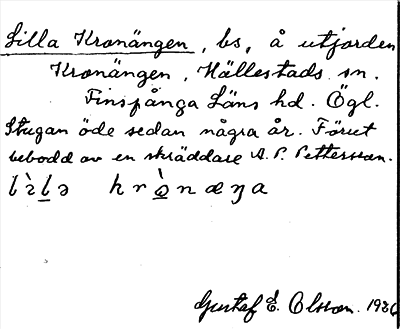 Lilla Kronängen, bs, å utjorden
Kronängen, Hällestads sn.
Finspånga Läns hd. Ögl.
Stugan öde sedan några år. Förut
bebodd av en skräddare A. P. Pettersson.
lìlə krònæŋa
Gustaf E. Olsson. 1936